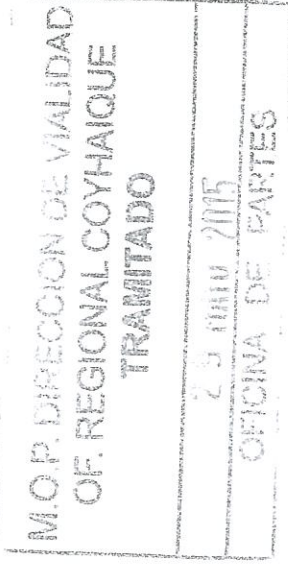 M.O.P. DIRECCION DE VIALIDAD
OF. REGIONAL COYHAIQUE
TRAMITADO
OFICINA DE PARTES